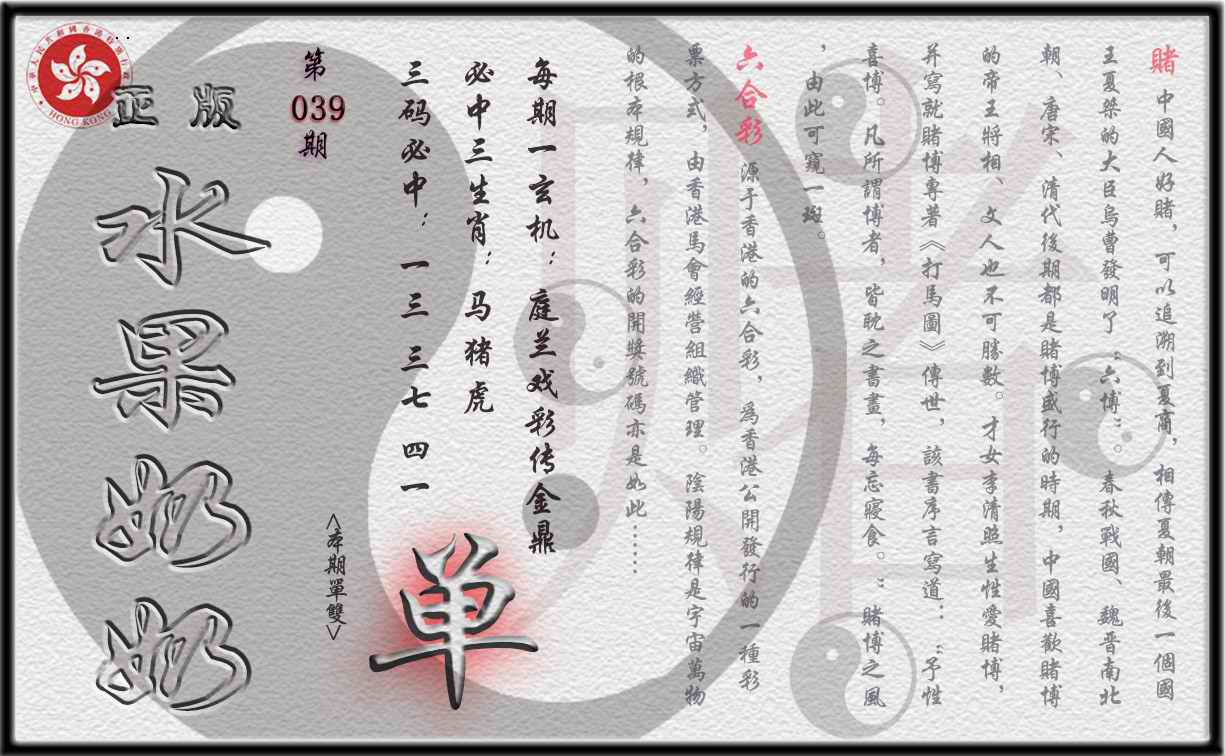 賭 中國人好賭，可以追溯到夏商，相傳夏朝最後一個國
王夏桀的大臣烏曹發明了“六博”。春秋戰國、魏晋南北
朝、唐宋、清代後期都是賭博盛行的時期，中國喜歡賭博
的帝王將相、文人也不可勝數。才女李清照生性愛賭博，
并寫就賭博專著《打馬圖》傳世，該書序言寫道：“予性
喜博。凡所謂博者，皆眈之書晝，每忘寢食。”賭博之風
，由此可窺一斑。
六合彩 源于香港的六合彩，爲香港公開發行的一種彩
票方式，由香港馬會經營組織管理。陰陽規律是宇宙萬物
的根本規律，六合彩的開獎號碼亦是如此……
每期一玄机：庭兰戏彩传金鼎
必中三生肖：马猪虎
三码必中：一三 三七 四一
单
<本期單雙>
第039期
正版
水果奶奶
中華人民共和國香港特別行政區
HONG KONG